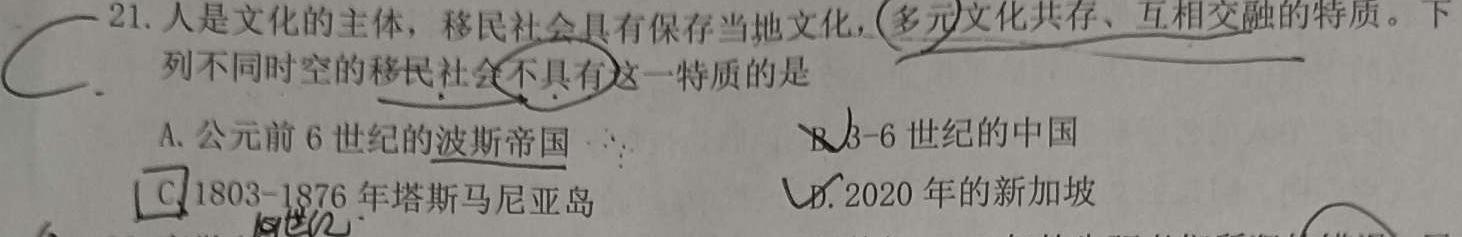 21. 人是文化的主体，移民社会具有保存当地文化，多元文化共存、互相交融的特质。下
列不同时空的移民社会不具有这一特质的是
A. 公元前 6 世纪的波斯帝国 B. 3-6 世纪的中国
C. 1803-1876 年塔斯马尼亚岛 D. 2020 年的新加坡